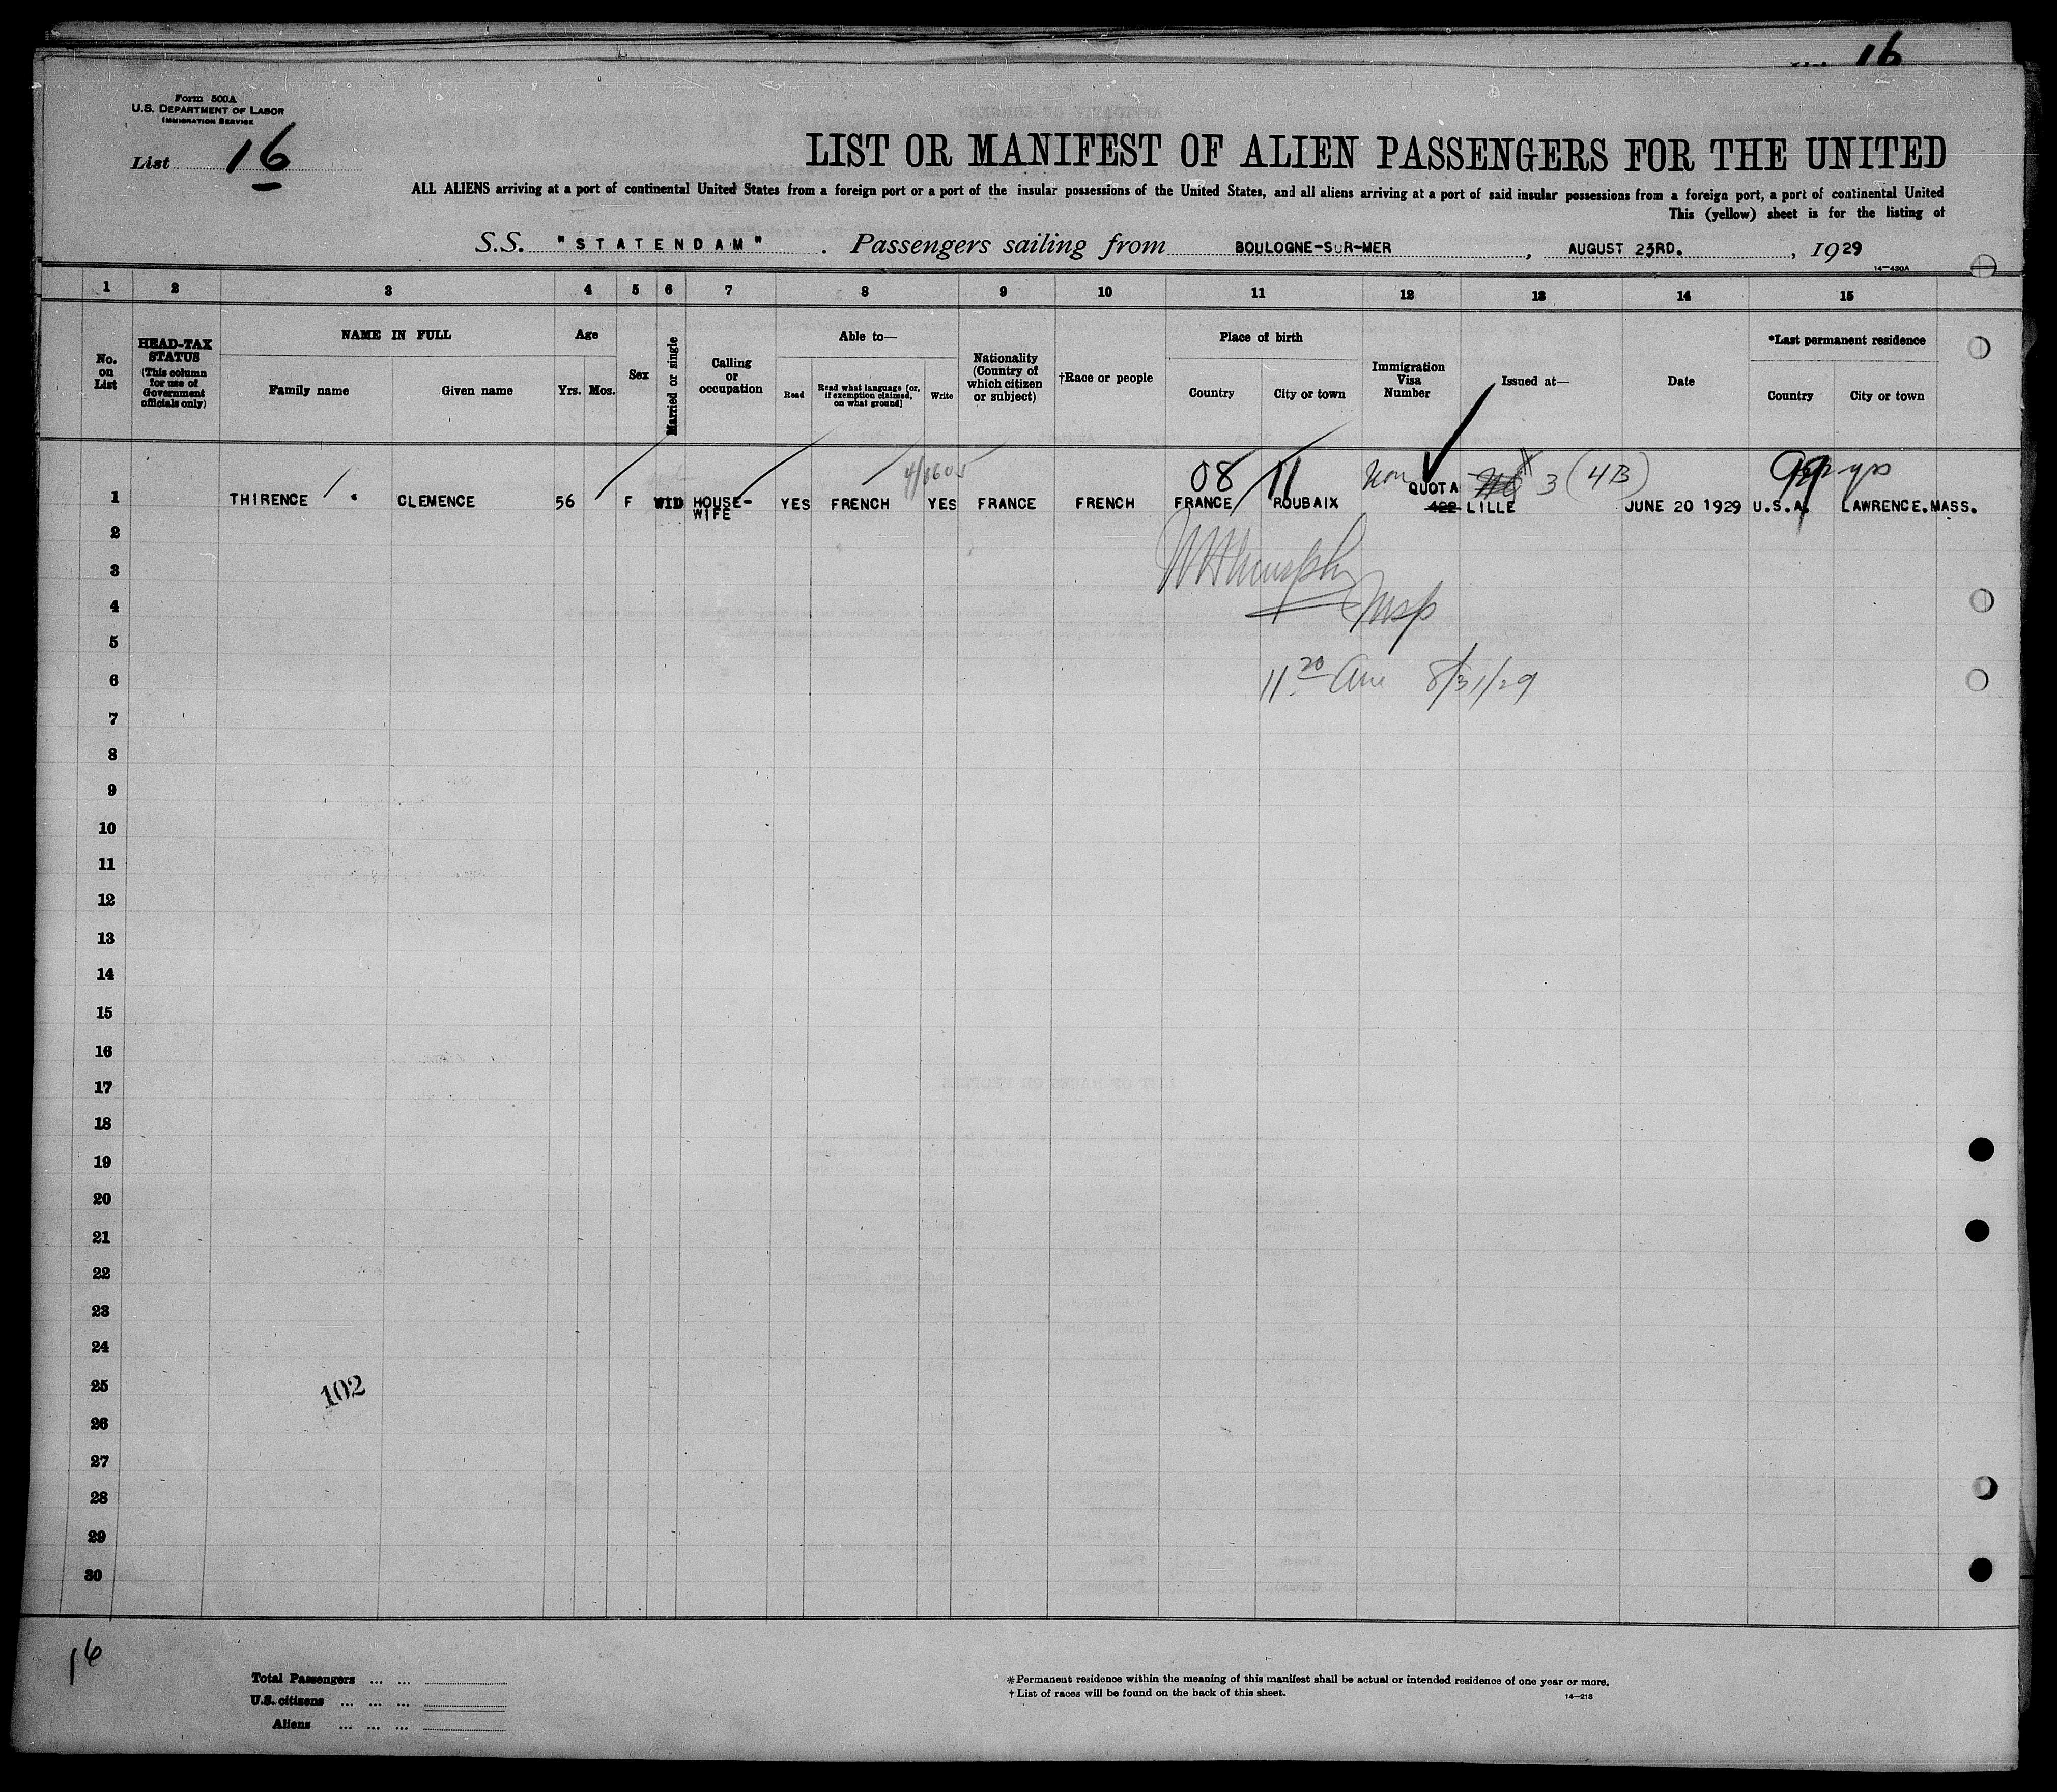 16
Form 500A
U.S. DEPARTMENT OF LABOR
IMMIGRATION SERVICE
List 16
LIST OR MANIFEST OF ALIEN PASSENGERS FOR THE UNITED
ALL ALIENS arriving at a port of continental United States from a foreign port or a port of the insular possessions of the United States, and all aliens arriving at a port of said insular possessions from a foreign port, a port of continental United
This (yellow) sheet is for the listing of
S.S. "STATENDAM". Passengers sailing from BOULOGNE-SUR-MER, AUGUST 23RD., 1929
14-430A
1 2 3 4 5 6 7 8 9 10 11 12 13 14 15
No. on List
HEAD-TAX STATUS (This column for use of Government officials only)
NAME IN FULL
Family name Given name
Age
Yrs. Mos.
Sex
Married or single
Calling or occupation
Able to—
Read Read what language [or, if exemption claimed, on what ground] Write
Nationality (Country of which citizen or subject)
†Race or people
Place of birth
Country City or town
Immigration Visa Number
Issued at—
Date
*Last permanent residence
Country City or town
08 11 Non 3 (4B) 99 yrs
1 THIRENCE CLEMENCE 56 F WID HOUSE-WIFE YES FRENCH YES FRANCE FRENCH FRANCE ROUBAIX QUOTA 422 LILLE JUNE 20 1929 U.S.A. LAWRENCE.MASS.
2
3
4 Insp
5
6 11 20 Am 8/31/29
7
8
9
10
11
12
13
14
15
16
17
18
19
20
21
22
23
24
25 102
26
27
28
29
30
16
Total Passengers ... ...
U.S. citizens ... ... ...
Aliens ... ... ...
*Permanent residence within the meaning of this manifest shall be actual or intended residence of one year or more.
† List of races will be found on the back of this sheet.
14-213